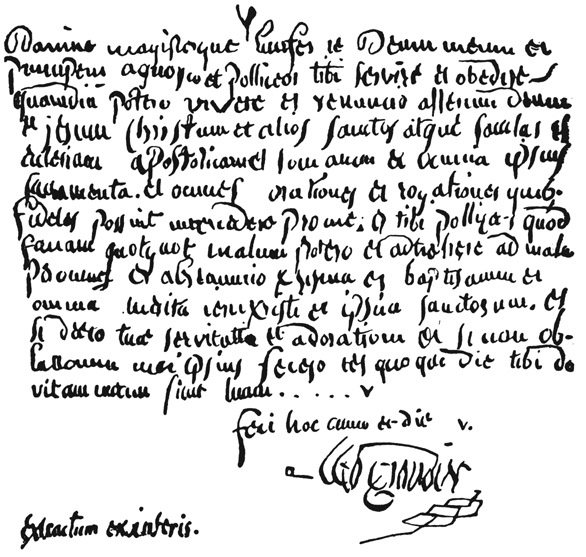 Domine magisterque lucifer te Deum meum et
principem agnosco et polliceor tibi servire et obedire
quamdiu potero vivere et renuncio alterum Deum
et jesum Christum et alios sanctos atque sanctas et
eclesiam apostolicam et romanam et omnia ipsius
sacramenta et omnes orationes et rogationes quib.
fideles possint intercedere pro me; et tibi polliceor quod
faciam quotquot malum potero et adtrahere ad mala
per omnes et abrenuncio chrisma et baptismum et
omnia merita iesu christi et ipsius sanctorum. et
si deero tuae servitutis et adorationi et si non ob-
lationem mei ipsius fecero ter quoque die tibi do
vitam meam sicut tuam
feci hoc anno et die
extractum ex inferis.